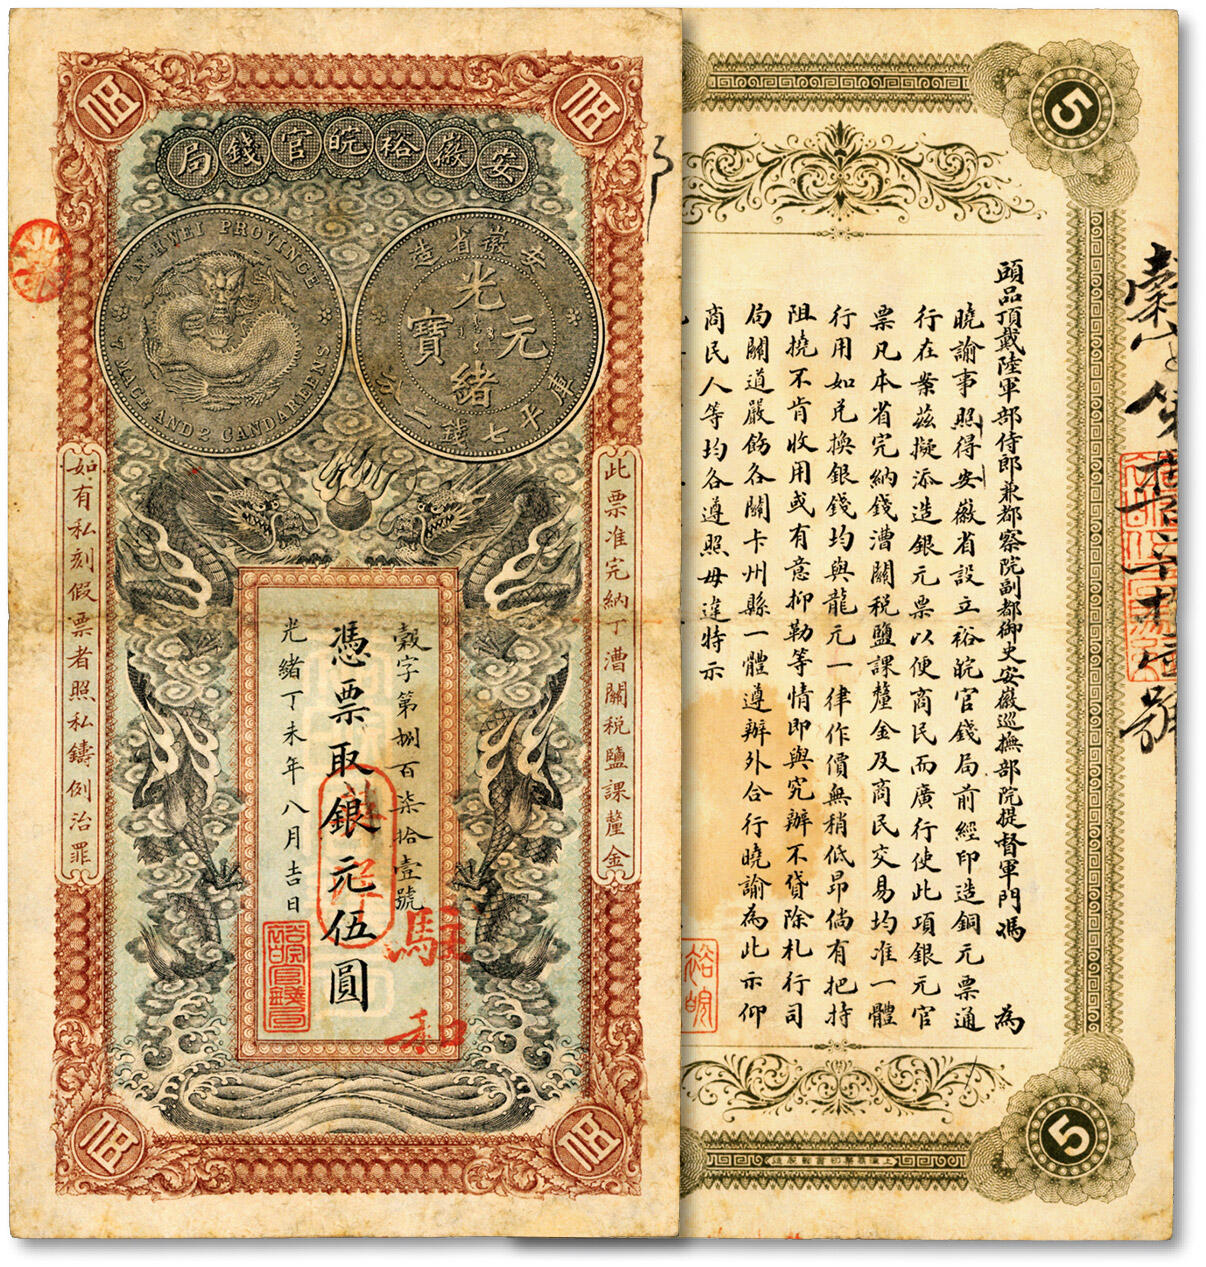 伍
伍
安徽裕皖官錢局
AN-HWEI PROVINCE
7 MACE AND 2 CANDAREENS
安徽省造
光緒元寶
庫平七錢二分
此票准完納丁漕關稅鹽課釐金
穀字第捌百柒拾壹號
憑票取銀元伍圓
光緒丁未年八月吉日
裕皖官錢局
如有私刻假票者照私鑄例治罪
駐和
伍
伍
5
頭品頂戴陸軍部侍郎兼都察院副都御史安徽巡撫部院提督軍門馮 為
曉諭事照得安徽省設立裕皖官錢局前經印造銅元票通
行在案茲擬添造銀元票以便商民而廣行使此項銀元官
票凡本省完納錢漕關稅鹽課釐金及商民交易均准一體
行用如兌換銀錢均與龍元一律作價無稍低昂倘有把持
阻撓不肯收用或有意抑勒等情即與究辦不貸除札行司
局關道嚴飭各關卡州縣一體遵辦外合行曉諭為此示仰
商民人等均各遵照毋違特示
裕皖
5